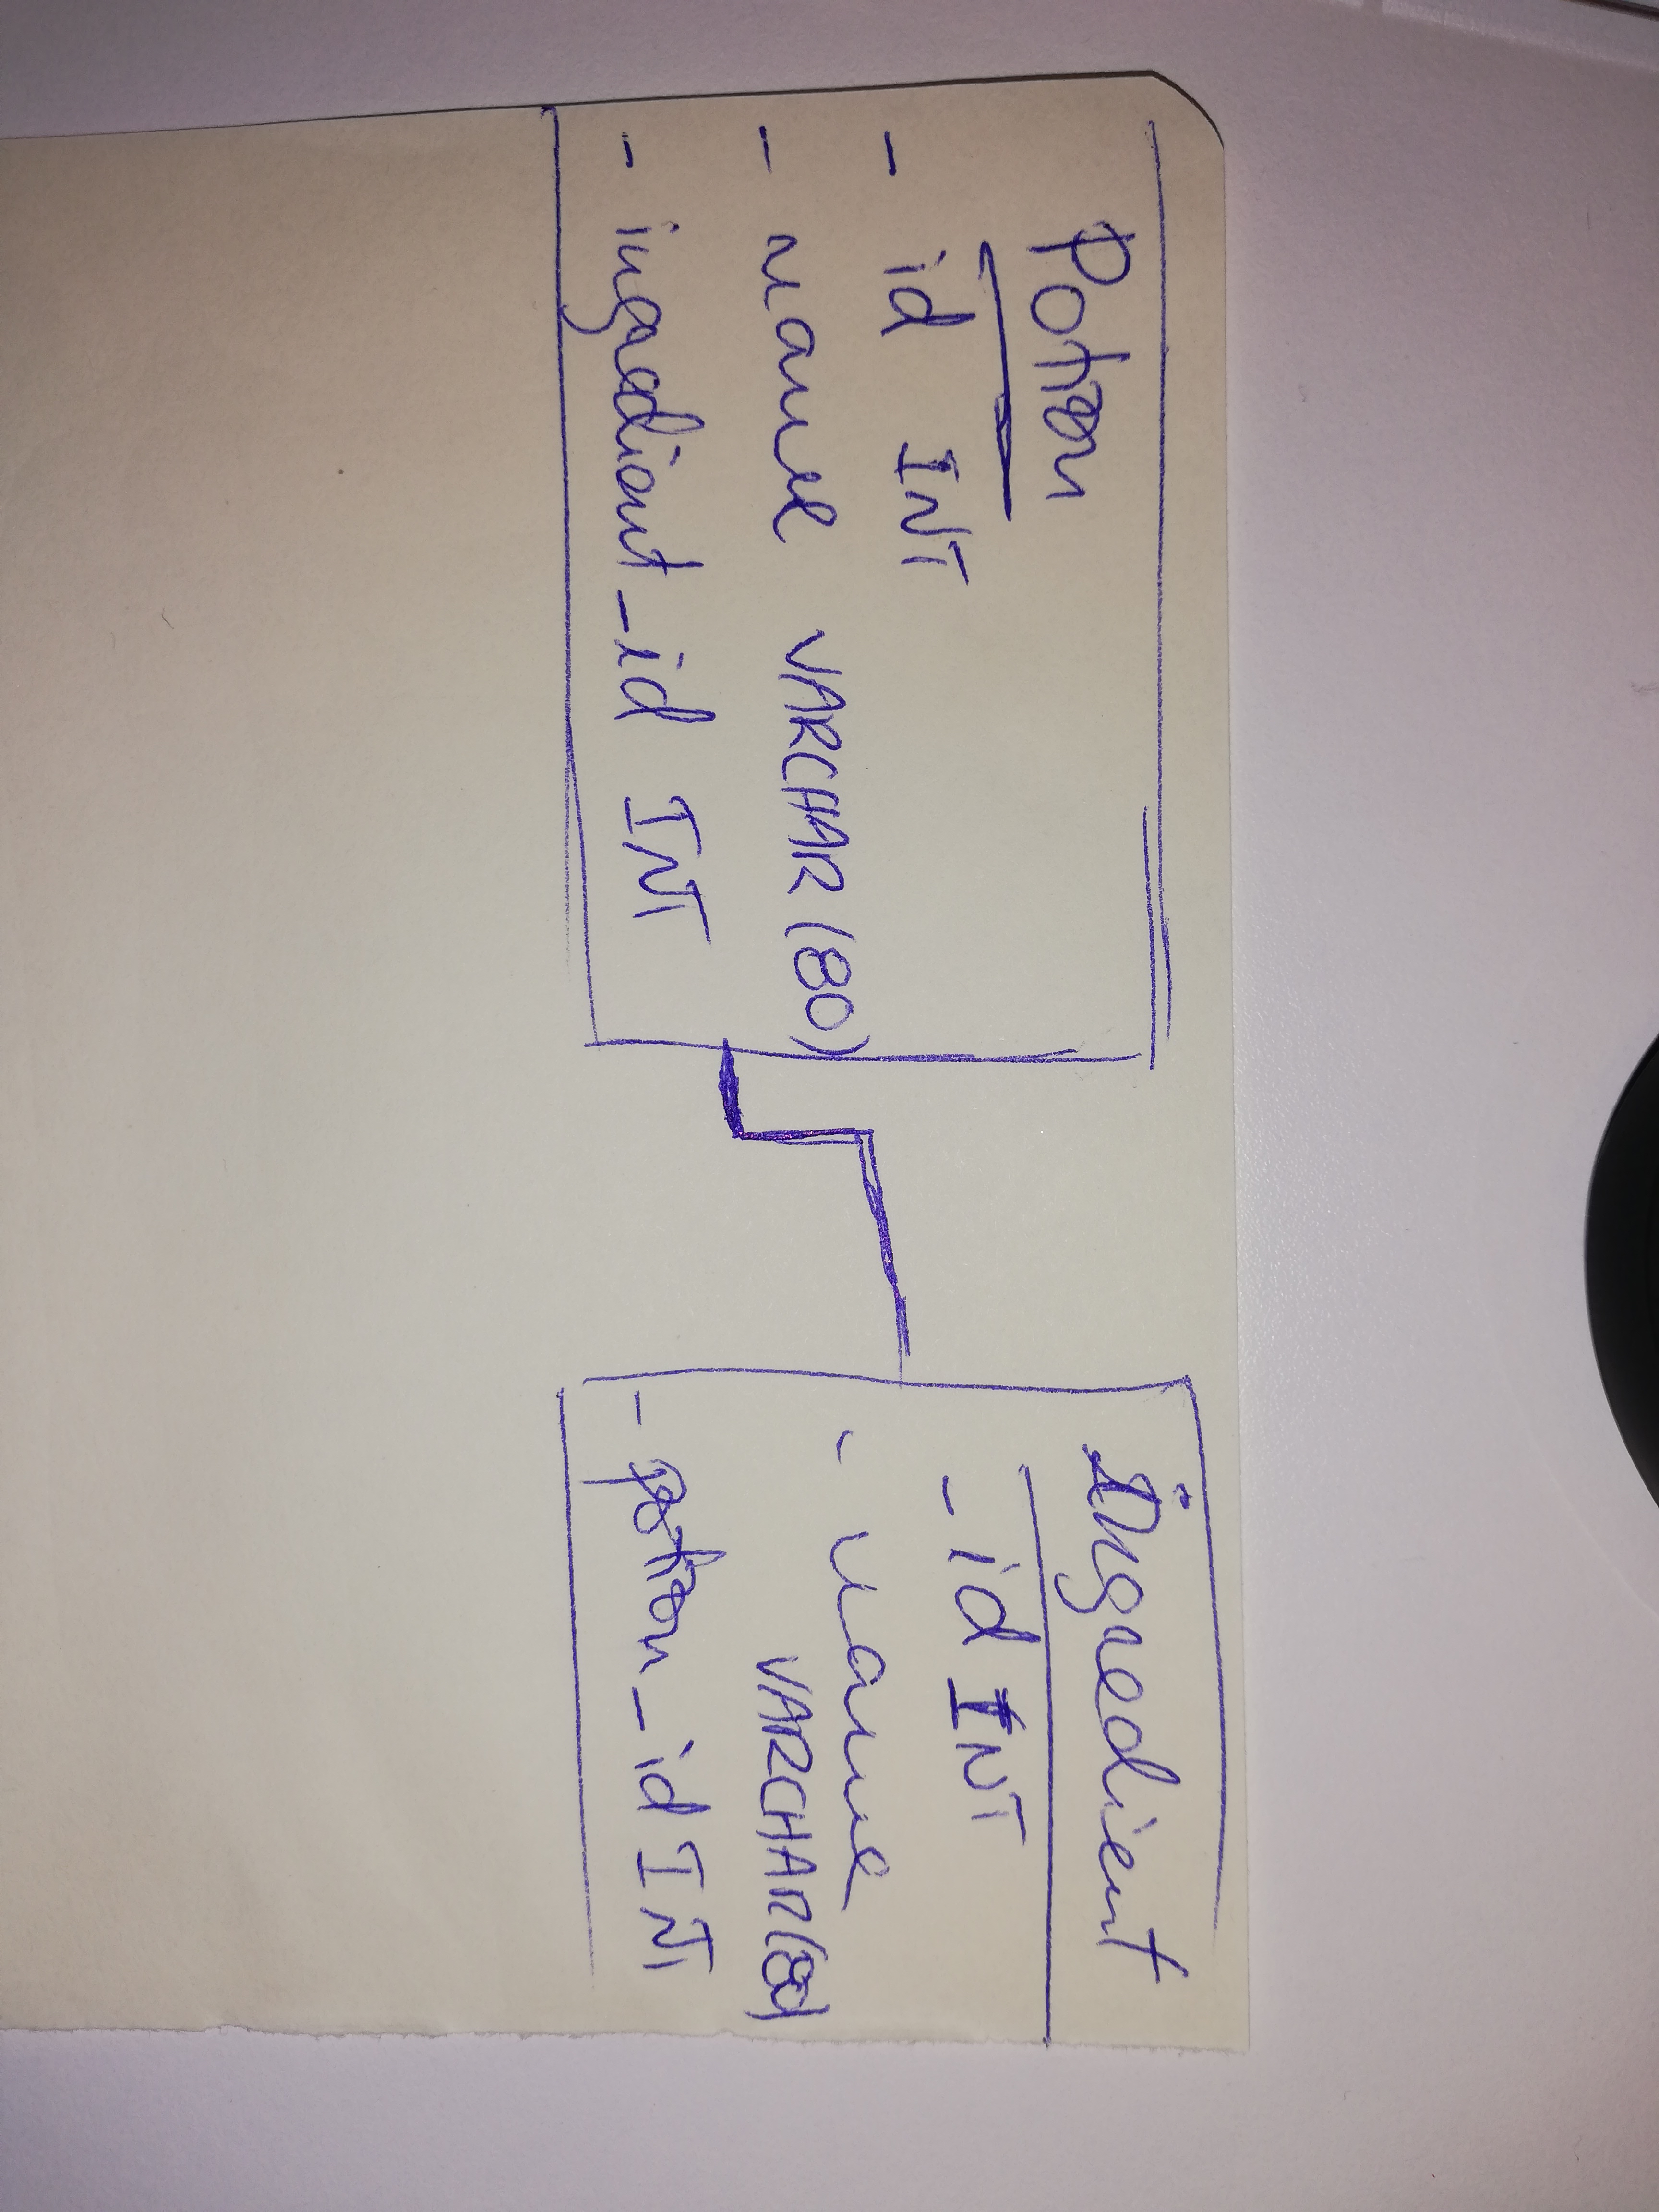 Potion
- id INT
- name VARCHAR(80)
- ingredient_id INT
Ingredient
- id INT
- name
VARCHAR(80)
- potion_id INT